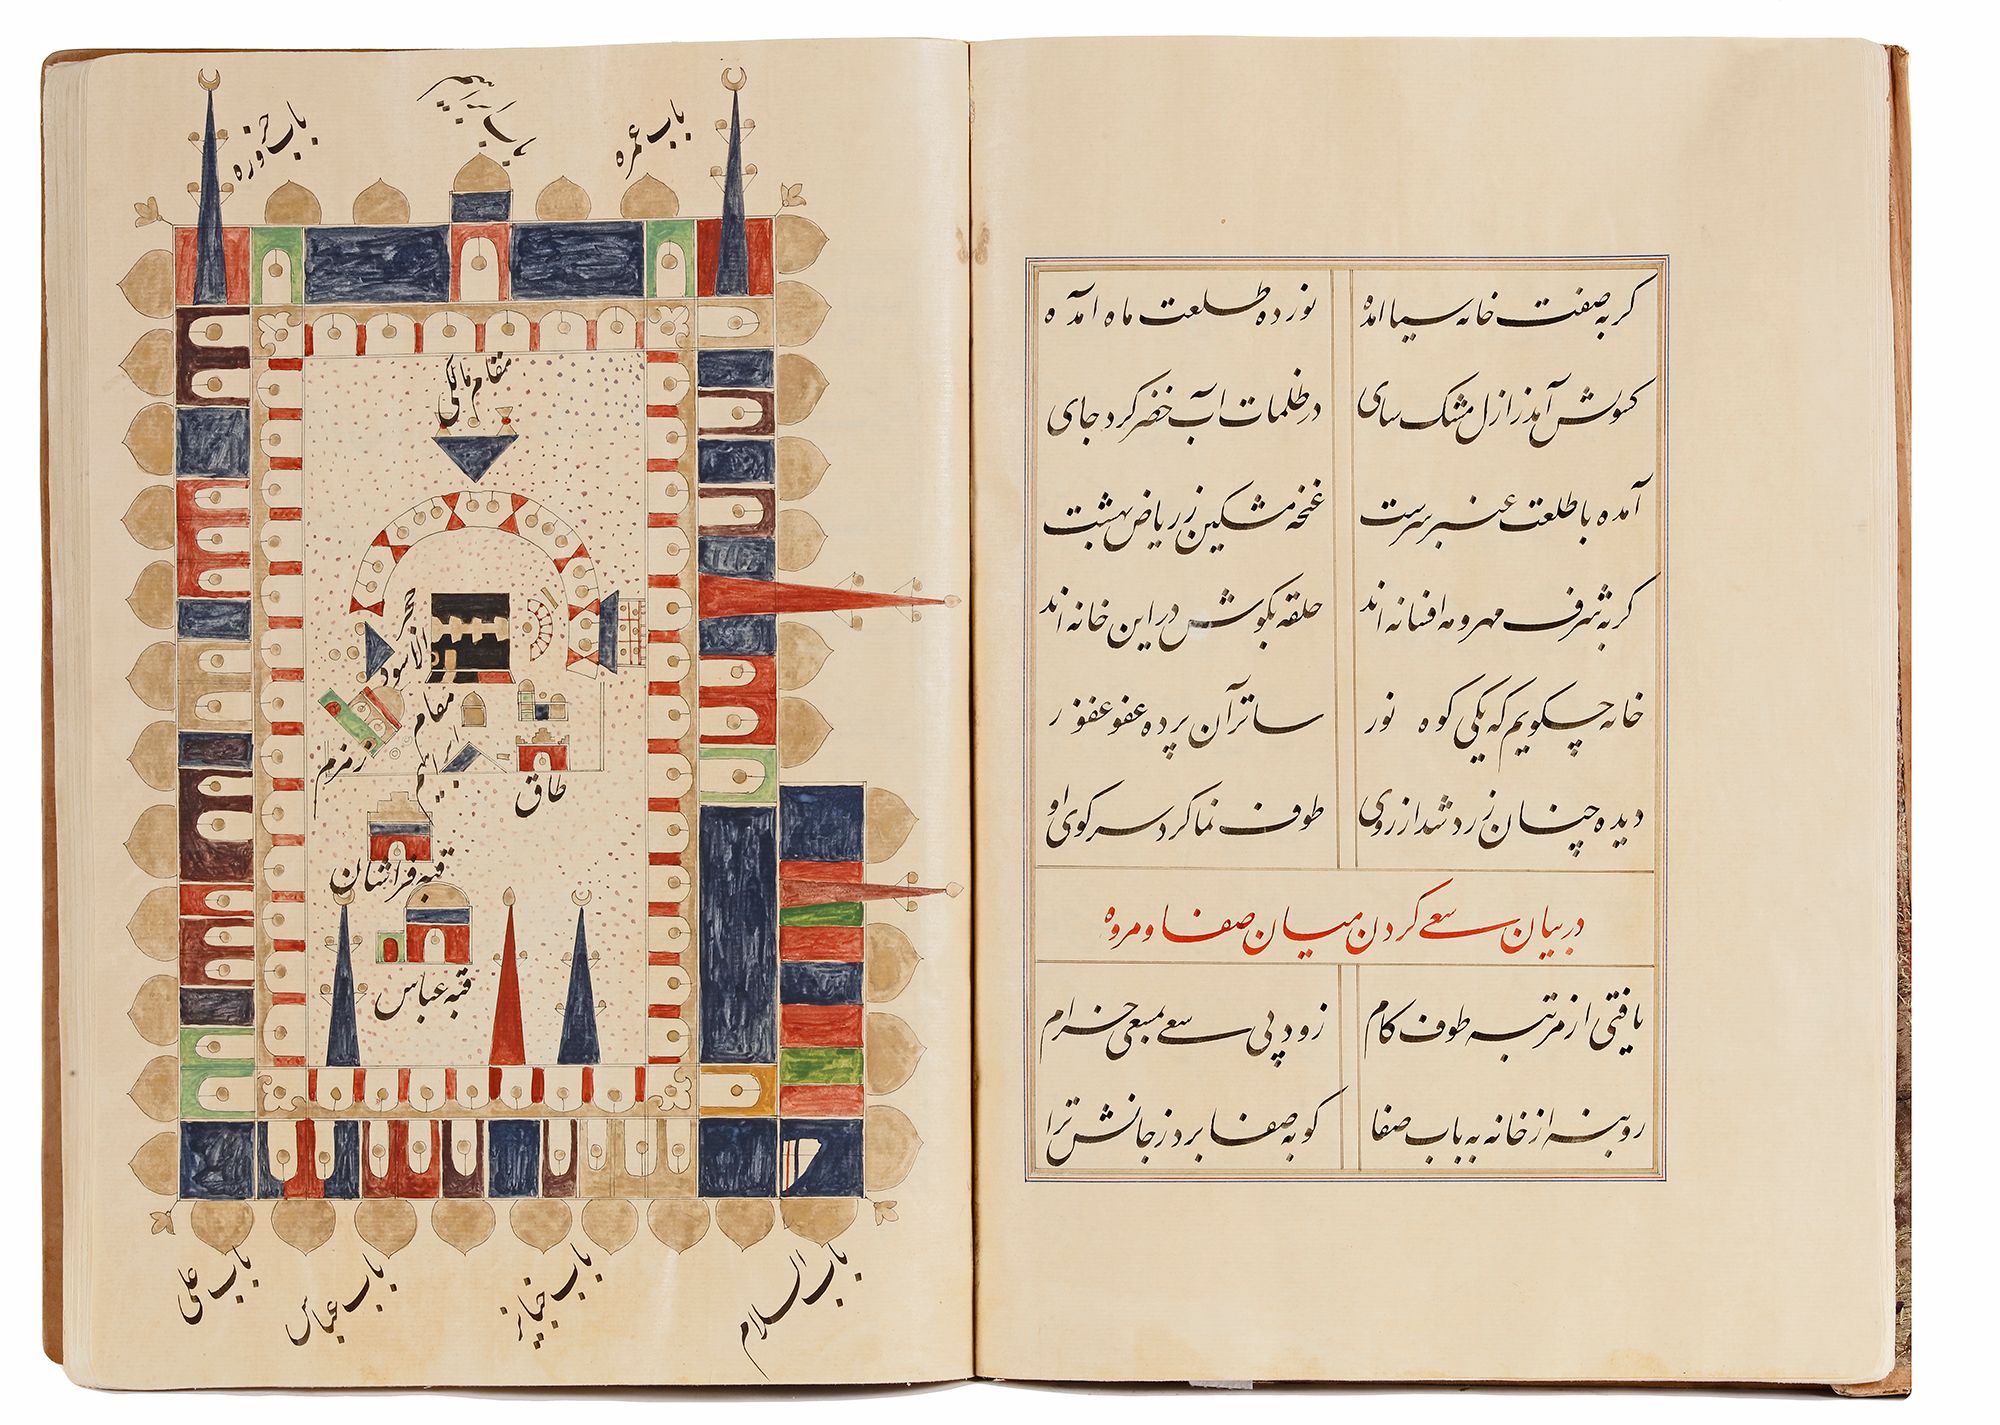 گر به صفت خانه سیا آمده نور ده طلعت ماه آمده
کسوتش آمد ز ازل مشک سای در ظلمات آب خضر کرد جای
آمده با طلعت عنبر سرشت غنچه مشکین ز ریاض بهشت
گر به شرف مهر و مه افسانه اند حلقه بگوش در این خانه اند
خانه چگویم که یکی کوه نور ساتر آن پرده عفو غفور
دیده چنان زرد شد از روی او طوف نما گرد سر کوی او
در بیان سعی کردن میان صفا و مروه
یافتی از مرتبه طوف کام زود پی سعی بمسعی خرام
رو بنه از خانه به باب صفا کو به صفا برد ز جانش ترا
باب حزوره
باب ابراهیم
باب عمره
مقام مالکی
حجر الاسود
مقام ابراهیم
زمزم
طاق
قبه فراشان
قبه عباس
باب علی
باب عباس
باب السلام